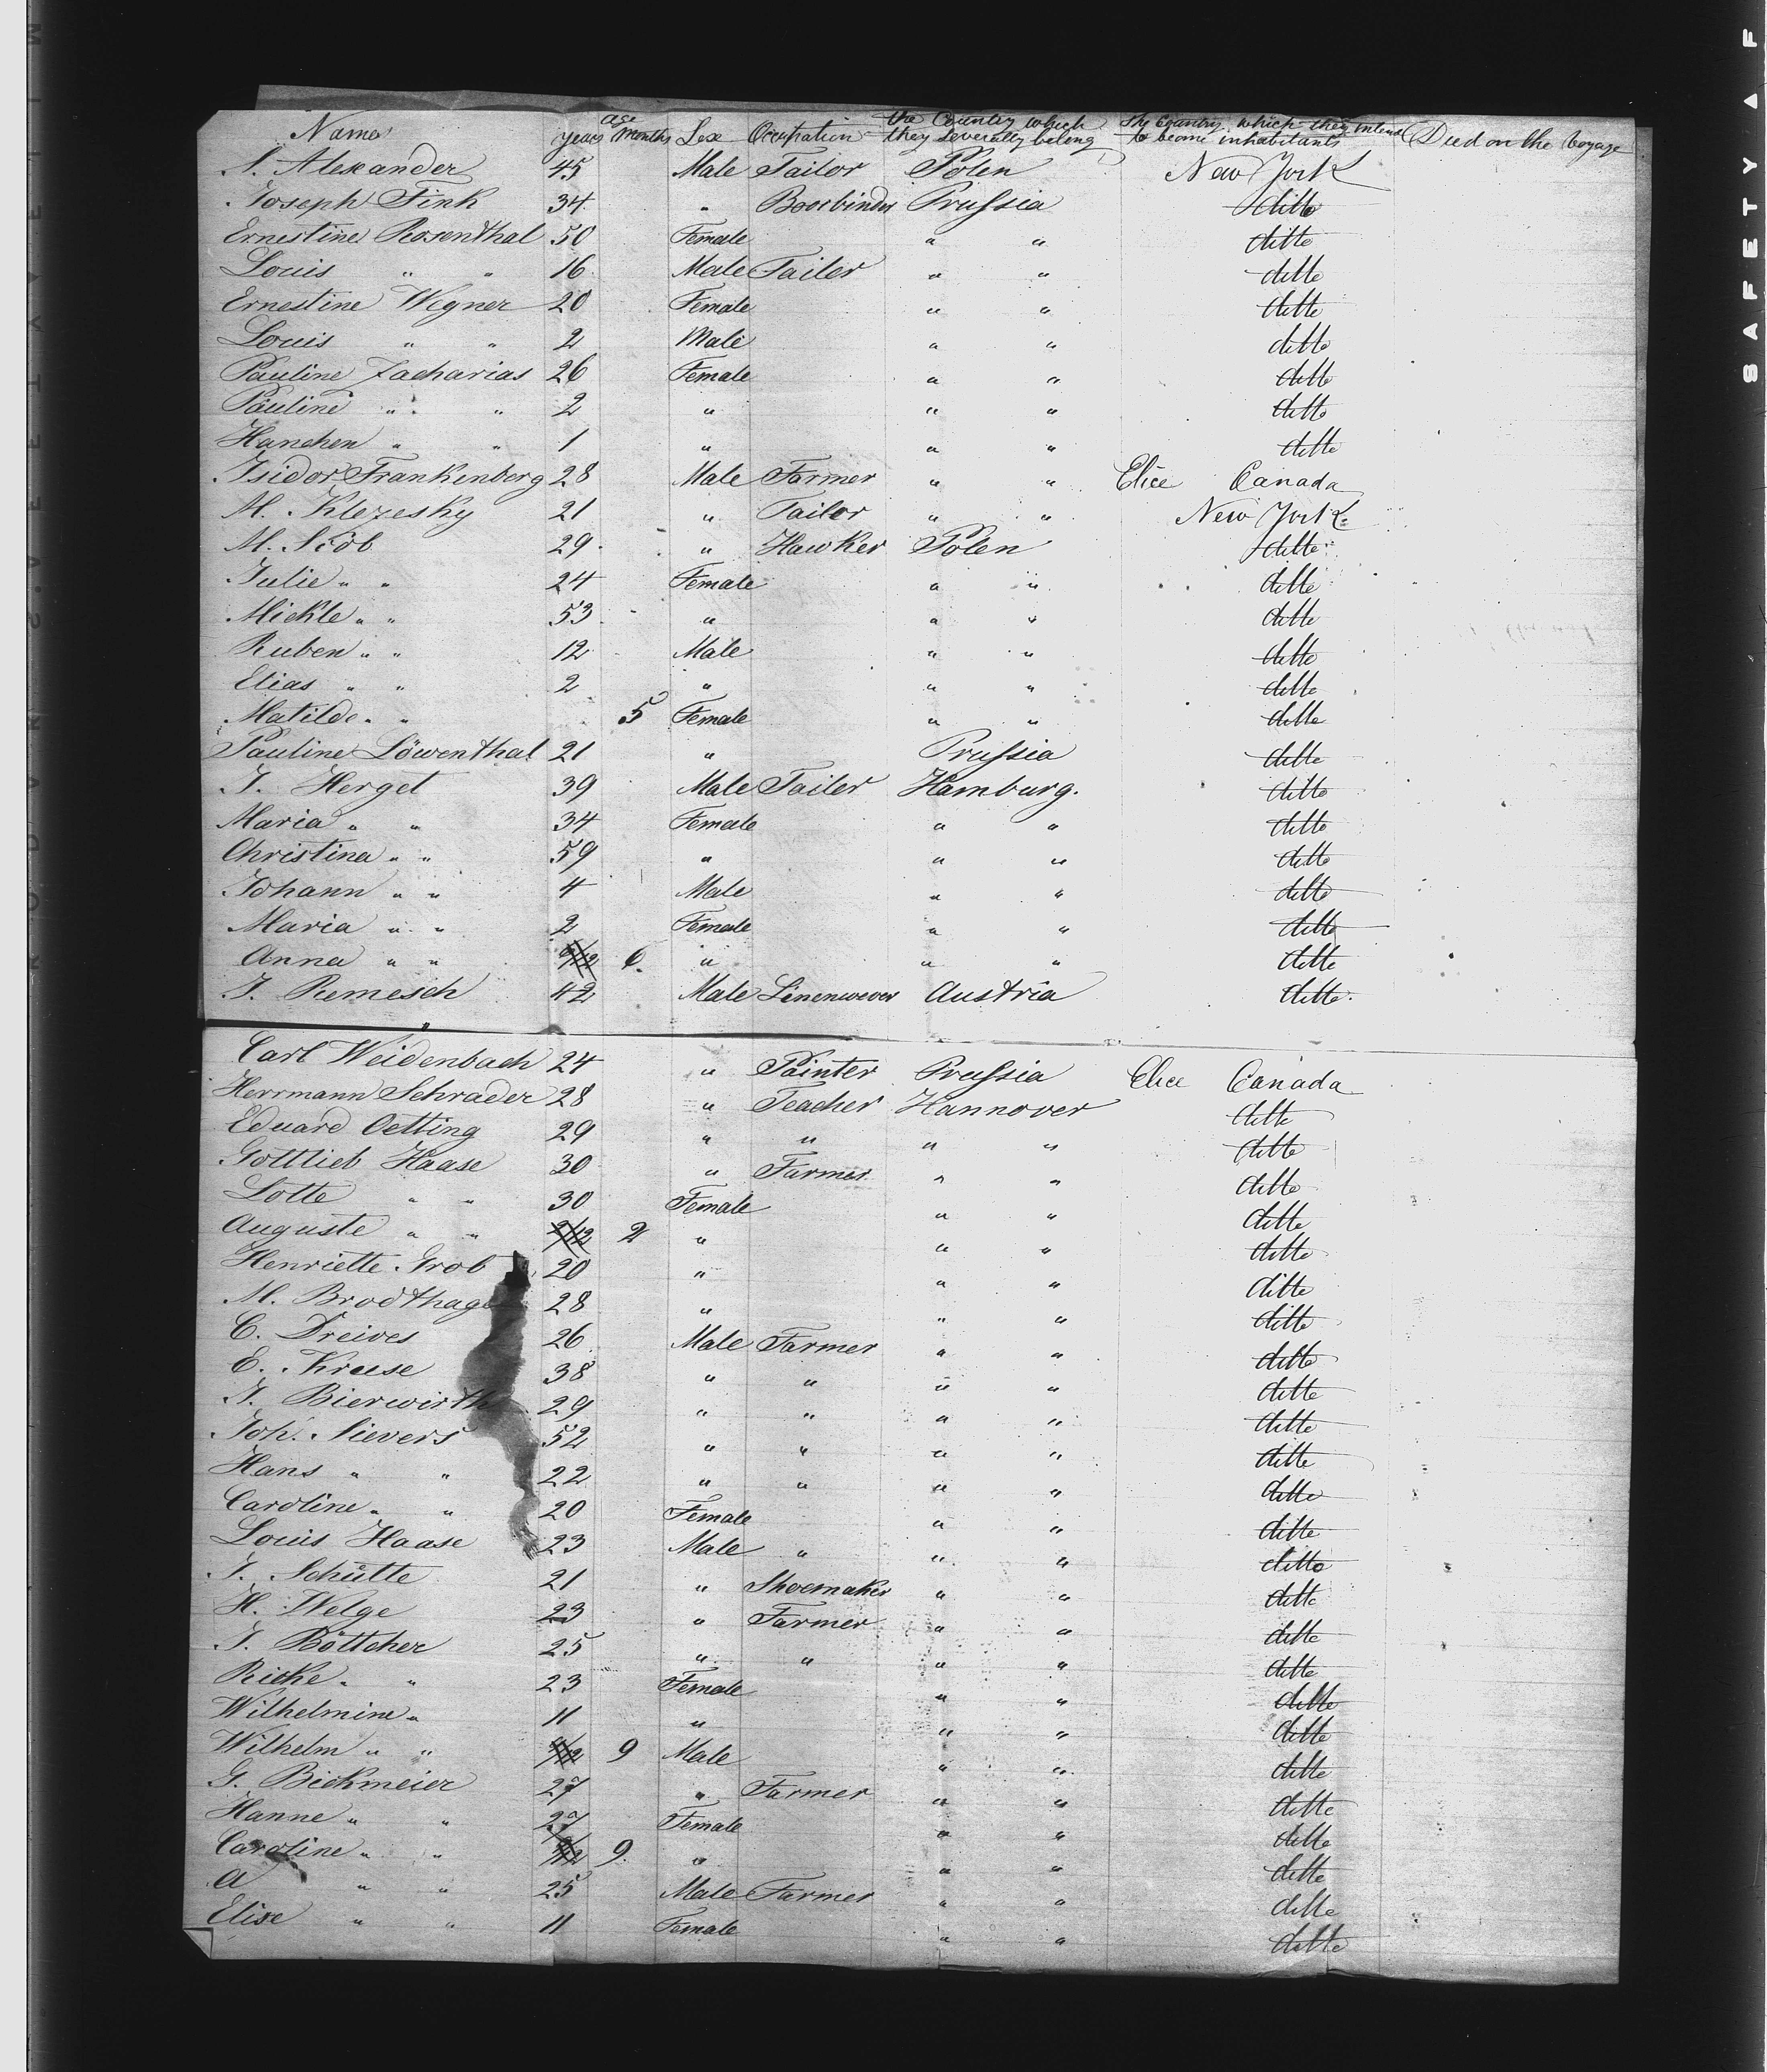 Names age years Months Sex Occupation the Country which they severally belong the Country which they intend to become inhabitants Died on the Voyage
S. Alexander 45 Male Tailor Polen New York
Joseph Fink 34 " Prussia ditto
Ernestine Rosenthal 50 Female " " ditto
Louis " " 16 Male Tailor " " ditto
Ernestine Wegner 20 Female " " ditto
Louis " " 2 Male " " ditto
Pauline Zacharias 26 Female " " ditto
Pauline " " 2 " " " ditto
Hanchen " " 1 " " " ditto
Isidor Frankenberg 28 Male Farmer " " Elice Canada
M. Klezesky 21 " Tailor " " New York
M. 29 " Hawker Polen ditto
Julie " " 24 Female " " ditto
Michle " " 53 " " " ditto
Ruben " " 12 Male " " ditto
Elias " " 2 " " " ditto
Matilde " " 5 Female " " ditto
Pauline Löwenthal 21 " Prussia ditto
J. Herget 39 Male Tailer Hamburg. ditto
Maria " " 34 Female " " ditto
Christina " " 59 " " " ditto
Johann " " 4 Male " " ditto
Maria " " 2 Female " " ditto
Anna " " 6 " " " ditto
J. Remesch 42 Male Linenwever Austria ditto
Carl Weidenbach 24 " Painter Prussia Elice Canada
Herrmann Schrader 28 " Teacher Hannover ditto
Eduard Oetting 29 " " " " ditto
Gottlieb Haase 30 " Farmer " " ditto
Lotte " " 30 Female " " ditto
Auguste " " 2 " " " ditto
Henriette Grob 20 " " " ditto
M. Brodthage 28 " " " ditto
C. Dreives 26 Male Farmer " " ditto
E. Kruse 38 " " " " ditto
J. Bierwirth 29 " " " " ditto
Joh. Sievers 52 " " " " ditto
Hans " " 22 " " " " ditto
Caroline " " 20 Female " " ditto
Louis Haase 23 Male " " " ditto
J. Schütte 21 " Shoemaker " " ditto
H. Welge 23 " Farmer " " ditto
J. Böttcher 25 " " " " ditto
Ricke " " 23 Female " " ditto
Wilhelmine " 11 " " " ditto
Wilhelm " " 9 Male " " ditto
G. Bickmeier 27 " Farmer " " ditto
Hanne " " 27 Female " " ditto
Caroline " " 9 " " " ditto
A " " 25 Male Farmer " " ditto
Elise " " 11 Female " " ditto
SAFETY